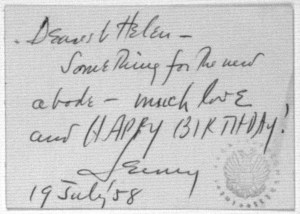 Dearest Helen –
Something for the new
abode – much love
and HAPPY BIRTHDAY!
Lenny
19 July '58